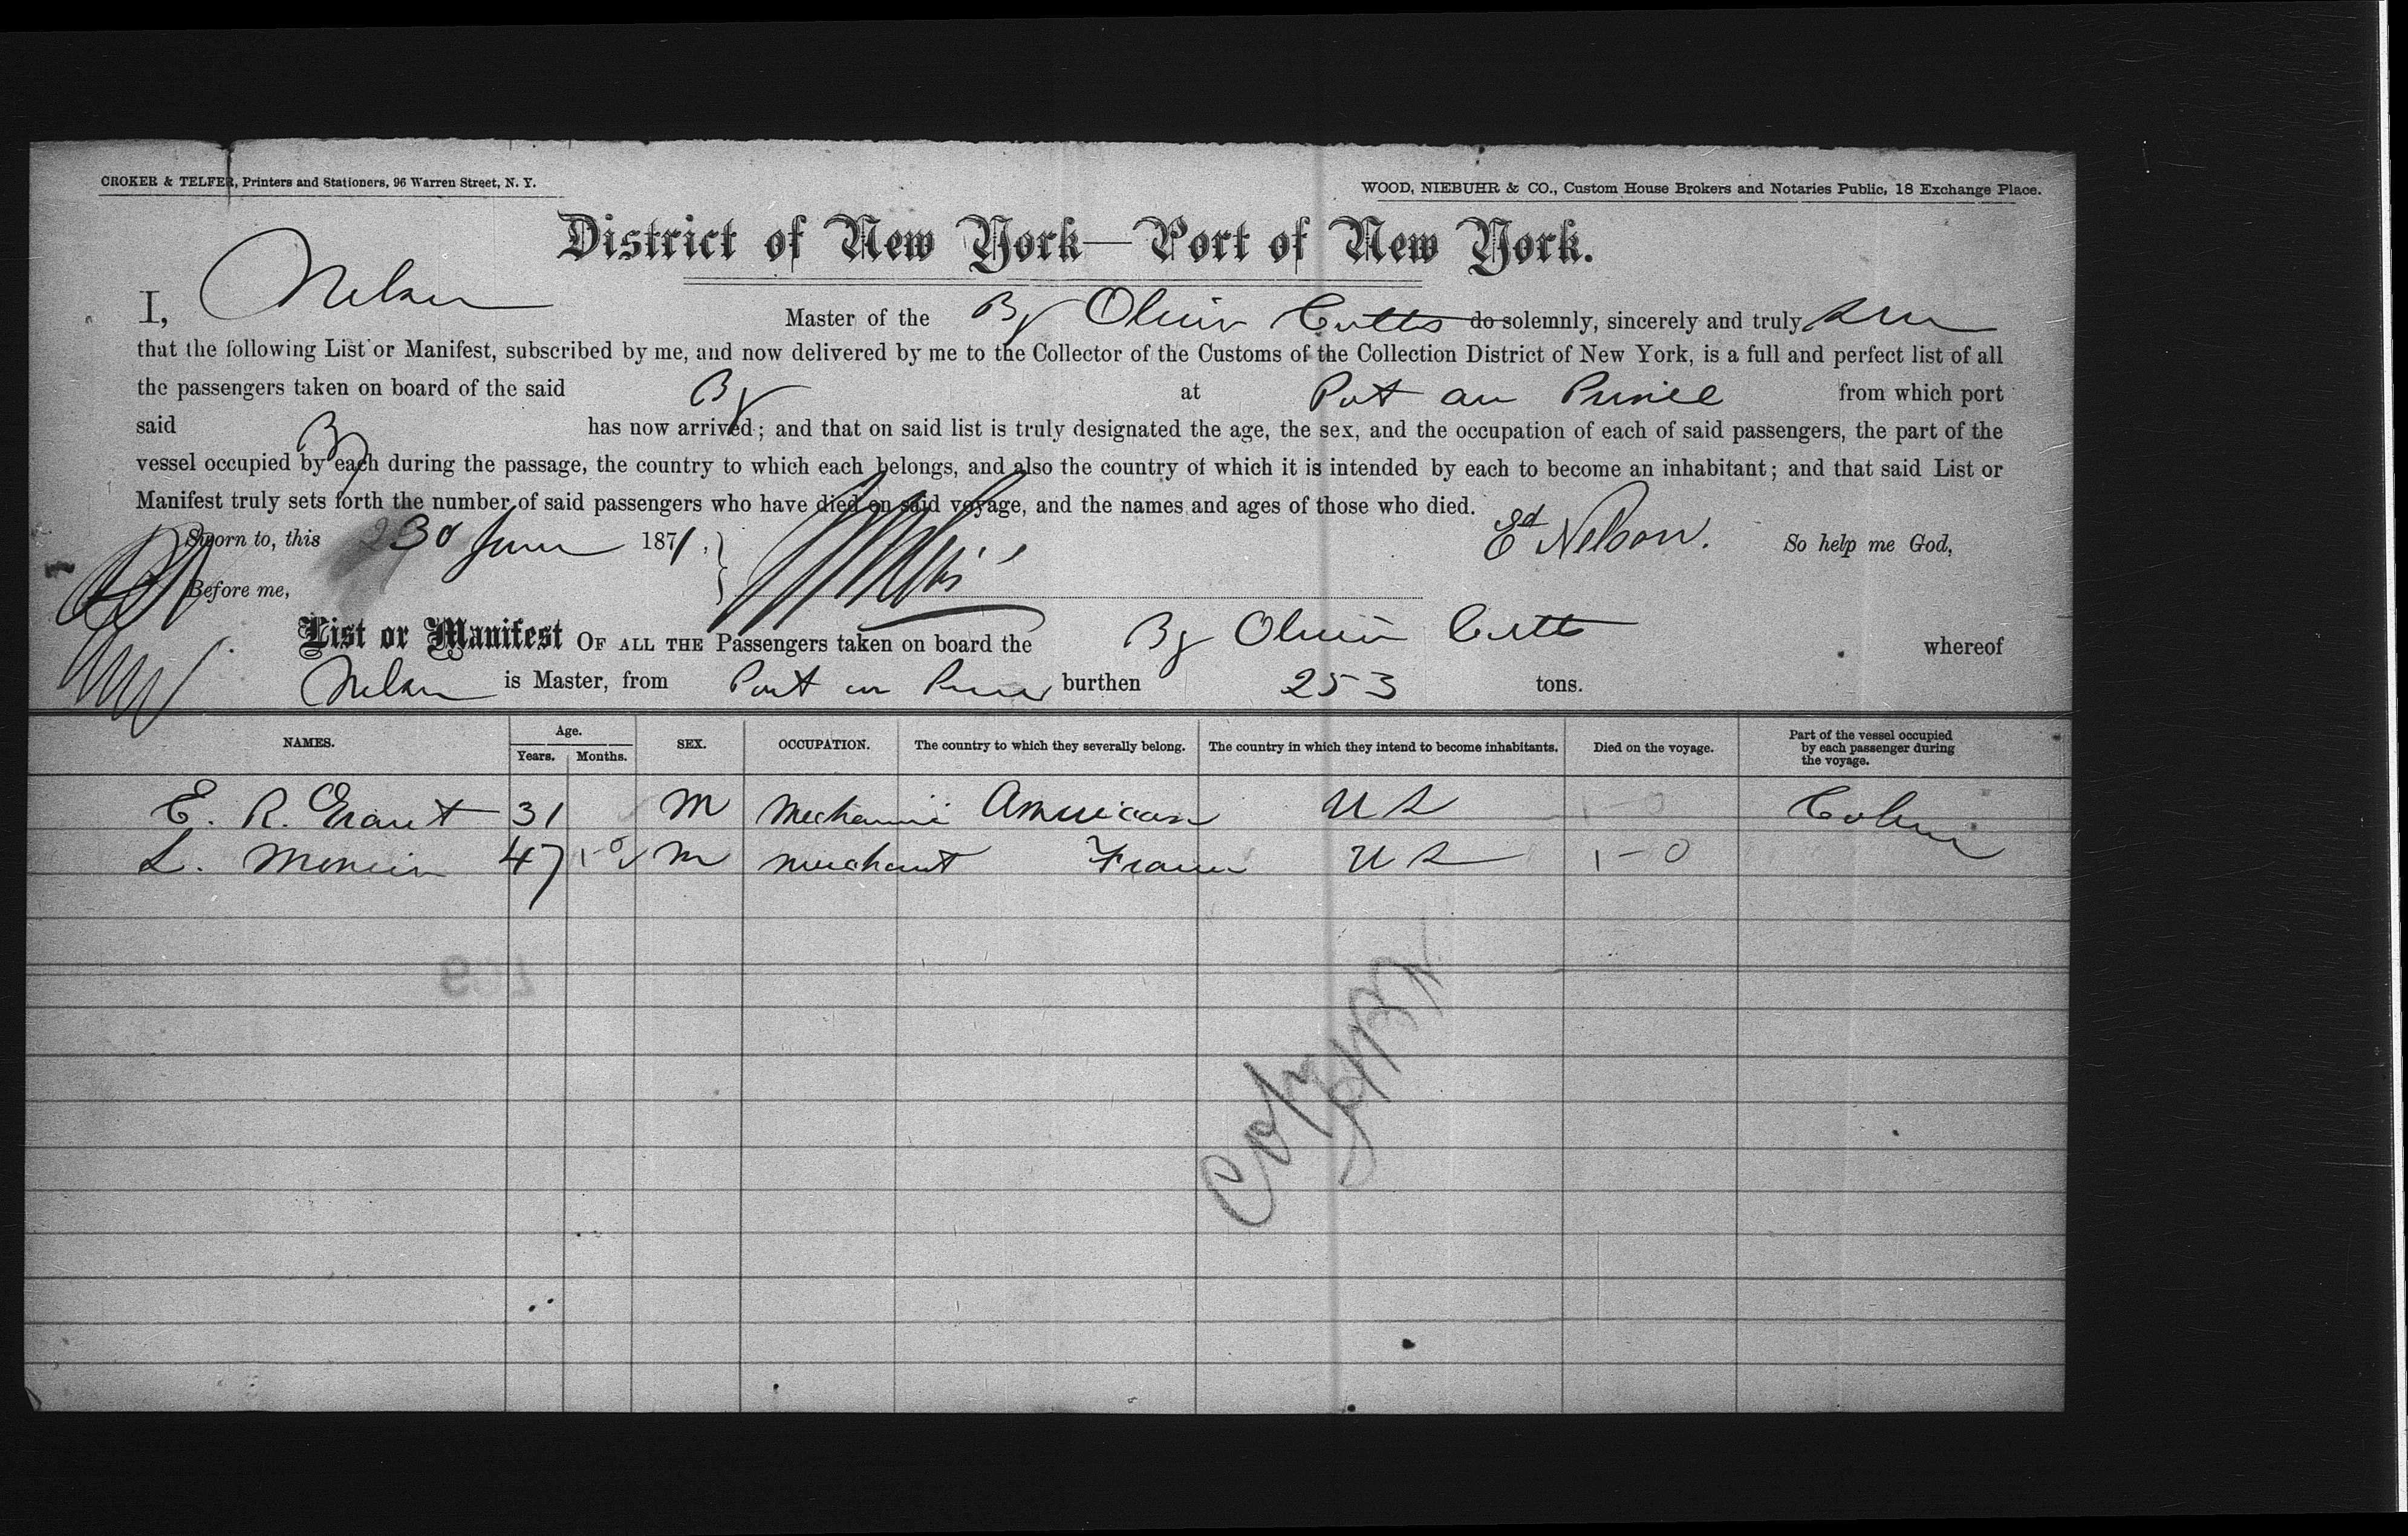 CROKER & TELFER, Printers and Stationers, 96 Warren Street, N. Y.
WOOD, NIEBUHR & CO., Custom House Brokers and Notaries Public, 18 Exchange Place.
District of New York—Port of New York.
I, Nelson Master of the Bg Oliver Cutts do solemnly, sincerely and truly
that the following List or Manifest, subscribed by me, and now delivered by me to the Collector of the Customs of the Collection District of New York, is a full and perfect list of all
the passengers taken on board of the said Bg at Port au Prince from which port
said Bg has now arrived; and that on said list is truly designated the age, the sex, and the occupation of each of said passengers, the part of the
vessel occupied by each during the passage, the country to which each belongs, and also the country of which it is intended by each to become an inhabitant; and that said List or
Manifest truly sets forth the number of said passengers who have died on said voyage, and the names and ages of those who died.
Sworn to, this 1871, Ed Nelson. So help me God,
Before me,
List or Manifest OF ALL THE Passengers taken on board the Bg Oliver Cutts whereof
Nelson is Master, from Port au Prince burthen 253 tons.
NAMES. Age. Years. Months. SEX. OCCUPATION. The country to which they severally belong. The country in which they intend to become inhabitants. Died on the voyage. Part of the vessel occupied by each passenger during the voyage.
E. R. Grant 31 M Mechanic American U S Cabin
L. 47 M Merchant France U S 1-0
Copy